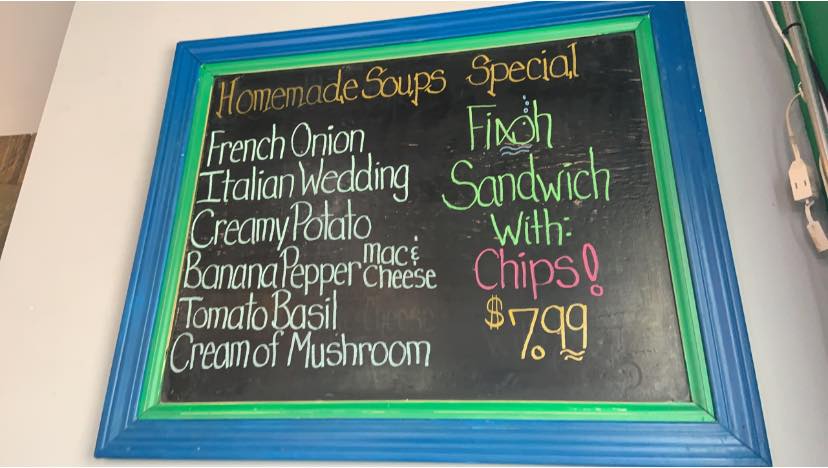 Homemade Soups
French Onion
Italian Wedding
Creamy Potato
Banana Pepper mac & cheese
Tomato Basil
Cream of Mushroom
Special
Fish
Sandwich
With:
Chips!
$7.99